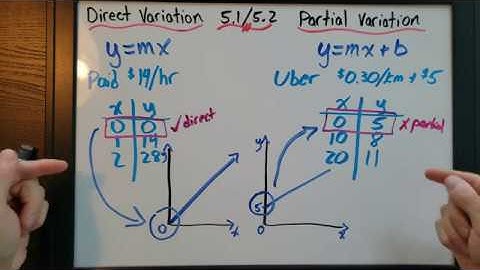 Direct Variation 5.1/5.2 Partial Variation
y=mx
y=mx+b
Paid $14/hr
Uber $0.30/km + $5
x y
0 0 ✓direct
1 14
2 28
x y
0 5 x partial
10 8
20 11
y
0
x
y
5
0
x